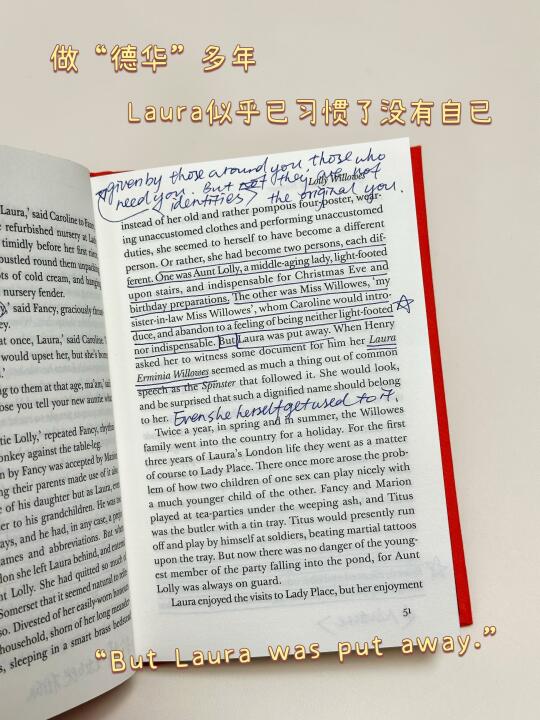 做“德华”多年
Laura似乎已习惯了没有自己
given by those around you, those who
need you. But they are not
identities
the original you.
Lolly Willowes
instead of her old and rather pompous four-poster, wear-
ing unaccustomed clothes and performing unaccustomed
duties, she seemed to herself to have become a different
person. Or rather, she had become two persons, each dif-
ferent. One was Aunt Lolly, a middle-aging lady, light-footed
upon stairs, and indispensable for Christmas Eve and
birthday preparations. The other was Miss Willowes, ‘my
sister-in-law Miss Willowes’, whom Caroline would intro-
duce, and abandon to a feeling of being neither light-footed
nor indispensable. But Laura was put away. When Henry
asked her to witness some document for him her Laura
Erminia Willowes seemed as much a thing out of common
speech as the Spinster that followed it. She would look,
and be surprised that such a dignified name should belong
to her. Even she herself get used to it.
Twice a year, in spring and in summer, the Willowes
family went into the country for a holiday. For the first
three years of Laura’s London life they went as a matter
of course to Lady Place. There once more arose the prob-
lem of how two children of one sex can play nicely with
a much younger child of the other. Fancy and Marion
played at tea-parties under the weeping ash, and Titus
was the butler with a tin tray. Titus would presently run
off and play by himself at soldiers, beating martial tattoos
upon the tray. But now there was no danger of the young-
est member of the party falling into the pond, for Aunt
Lolly was always on guard.
Laura enjoyed the visits to Lady Place, but her enjoyment
51
Laura,’ said Caroline to Fancy
refurbished nursery at Lady
timidly before her first
bustled round them unpacking
ots of cold cream, and hanging
nursery fender.
said Fancy, graciously
at once, Laura,’ said Caroline.
would upset her, but she’s
g to them at that age, ma’am,’ said
ose you tell your new auntie what
tie Lolly,’ repeated Fancy,
onkey against the table-leg.
n by Fancy was accepted by Marion
g their parents made use of it
of his daughter but as Laura,
er to his grandchildren. He was
ays, and he had, in any case, a
ames and abbreviations. But
on she left Laura behind, and
nt Lolly. She had quitted so much
Somerset that it seemed natural to
so. Divested of her easily-worn
household, shorn of her long
s, sleeping in a smart brass bedstead
“But Laura was put away.”